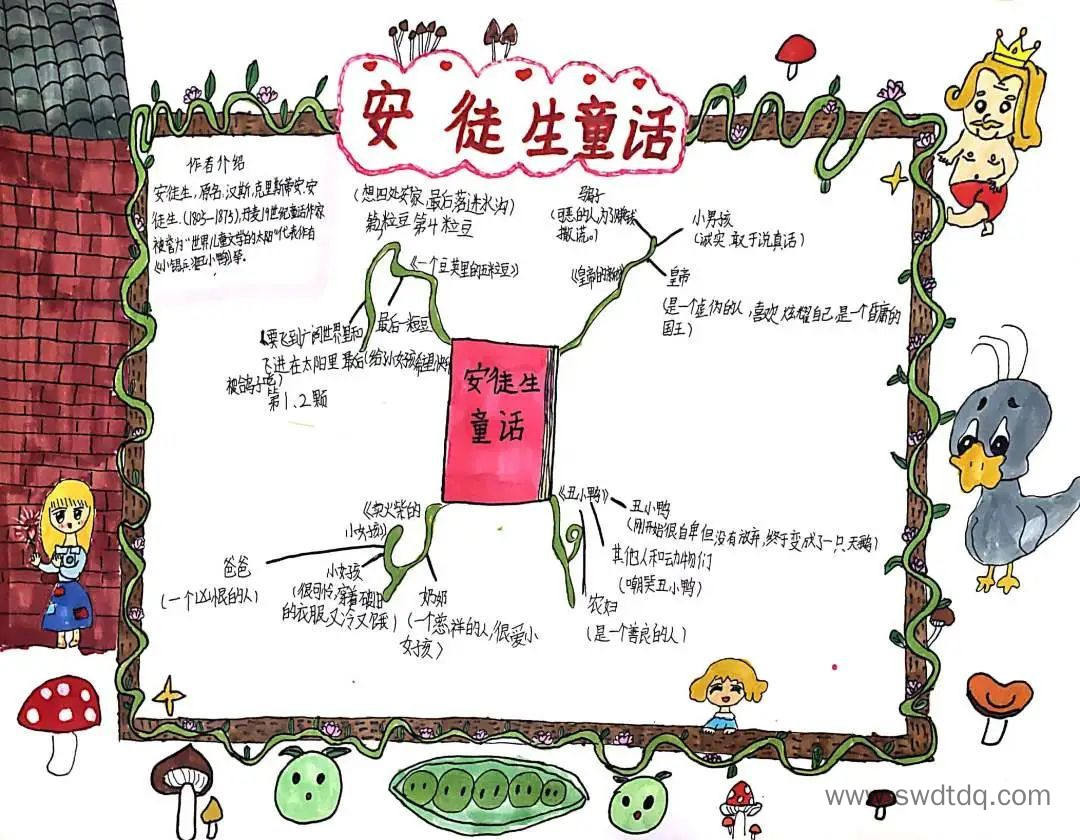 安徒生童话
作者介绍
安徒生,原名:汉斯,克里斯蒂安,安
徒生.(1805—1875),丹麦19世纪童话作家
被誉为"世界儿童文学的太阳"代表作有
《小锡兵》《丑小鸭》等.
(想四处安家,最后落进水沟)
第4粒豆
《一个豆荚里的五粒豆》
最后一粒豆
要飞到广阔世界里和
飞进在太阳里 最后
被鸽子吃)
第1、2颗
骗子
(可恶的人,为了
撒谎。)
小男孩
(诚实,敢于说真话)
《皇帝的新衣》
皇帝
(是一个虚伪的人,喜欢炫耀自己,是一个昏庸的
国王)
安徒生
童话
《卖火柴的
小女孩》
爸爸
(一个凶恨的人)
小女孩
(很可怜,穿着破旧
的衣服,又冷又饿)
奶奶
(一个慈祥的人,很爱小
女孩)
《丑小鸭》
丑小鸭
(刚开始很自卑但没有放弃,终于变成了一只天鹅)
其他人和动物们
(嘲笑丑小鸭)
农妇
(是一个善良的人)
www.swdtdq.com